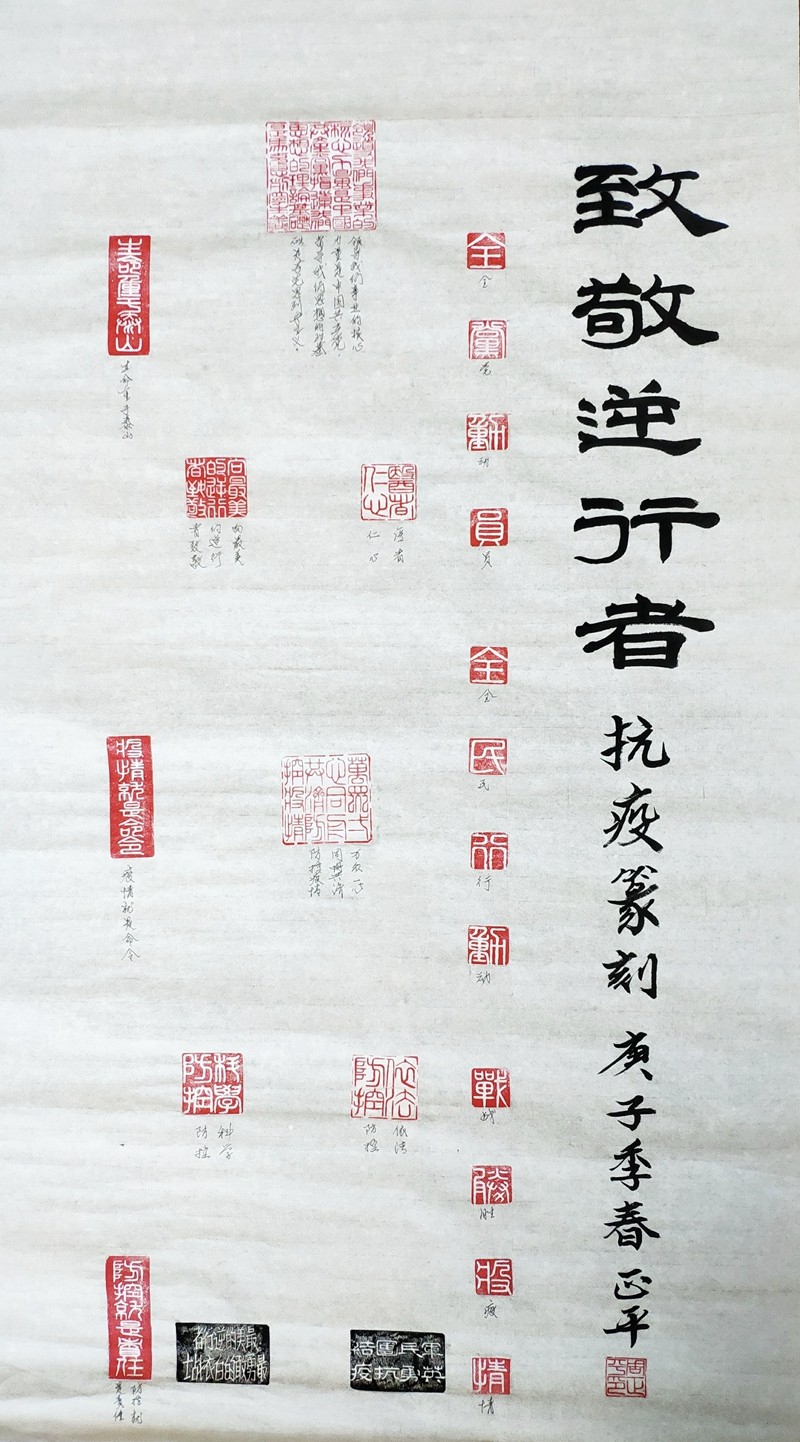 致敬逆行者 抗疫篆刻 庚子季春 正平
全
全
黨
党
動
动
員
员
全
全
民
民
行
行
動
动
戰
战
勝
胜
疫
疫
情
情
领导我们事业的核心
力量是中国共产党
指导我们思想的理论基
础是马克思列宁主义。
醫者
仁心
医者
仁心
向最美
的逆行
者致敬
向最美
的逆行
者致敬
生命重于泰山
生命重于泰山
萬眾一
心同舟
共濟防
控疫情
万众一心
同舟共济
防控疫情
疫情就是命令
疫情就是命令
依法
防控
依法
防控
科學
防控
科学
防控
軍民團結
英勇抗疫
最美的逆行者
最勇敢的白衣战士
防控就是責任
防控就
是责任